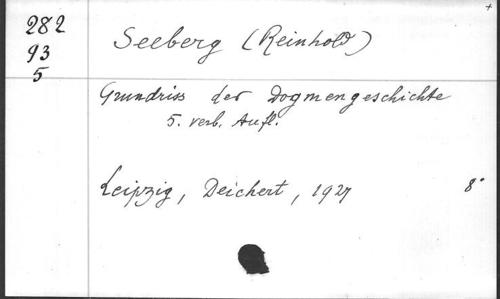 282
93
5
Seeberg (Reinhold)
Grundriss der Dogmengeschichte
5. verb. Aufl.
Leipzig, Deichert, 1927
8°